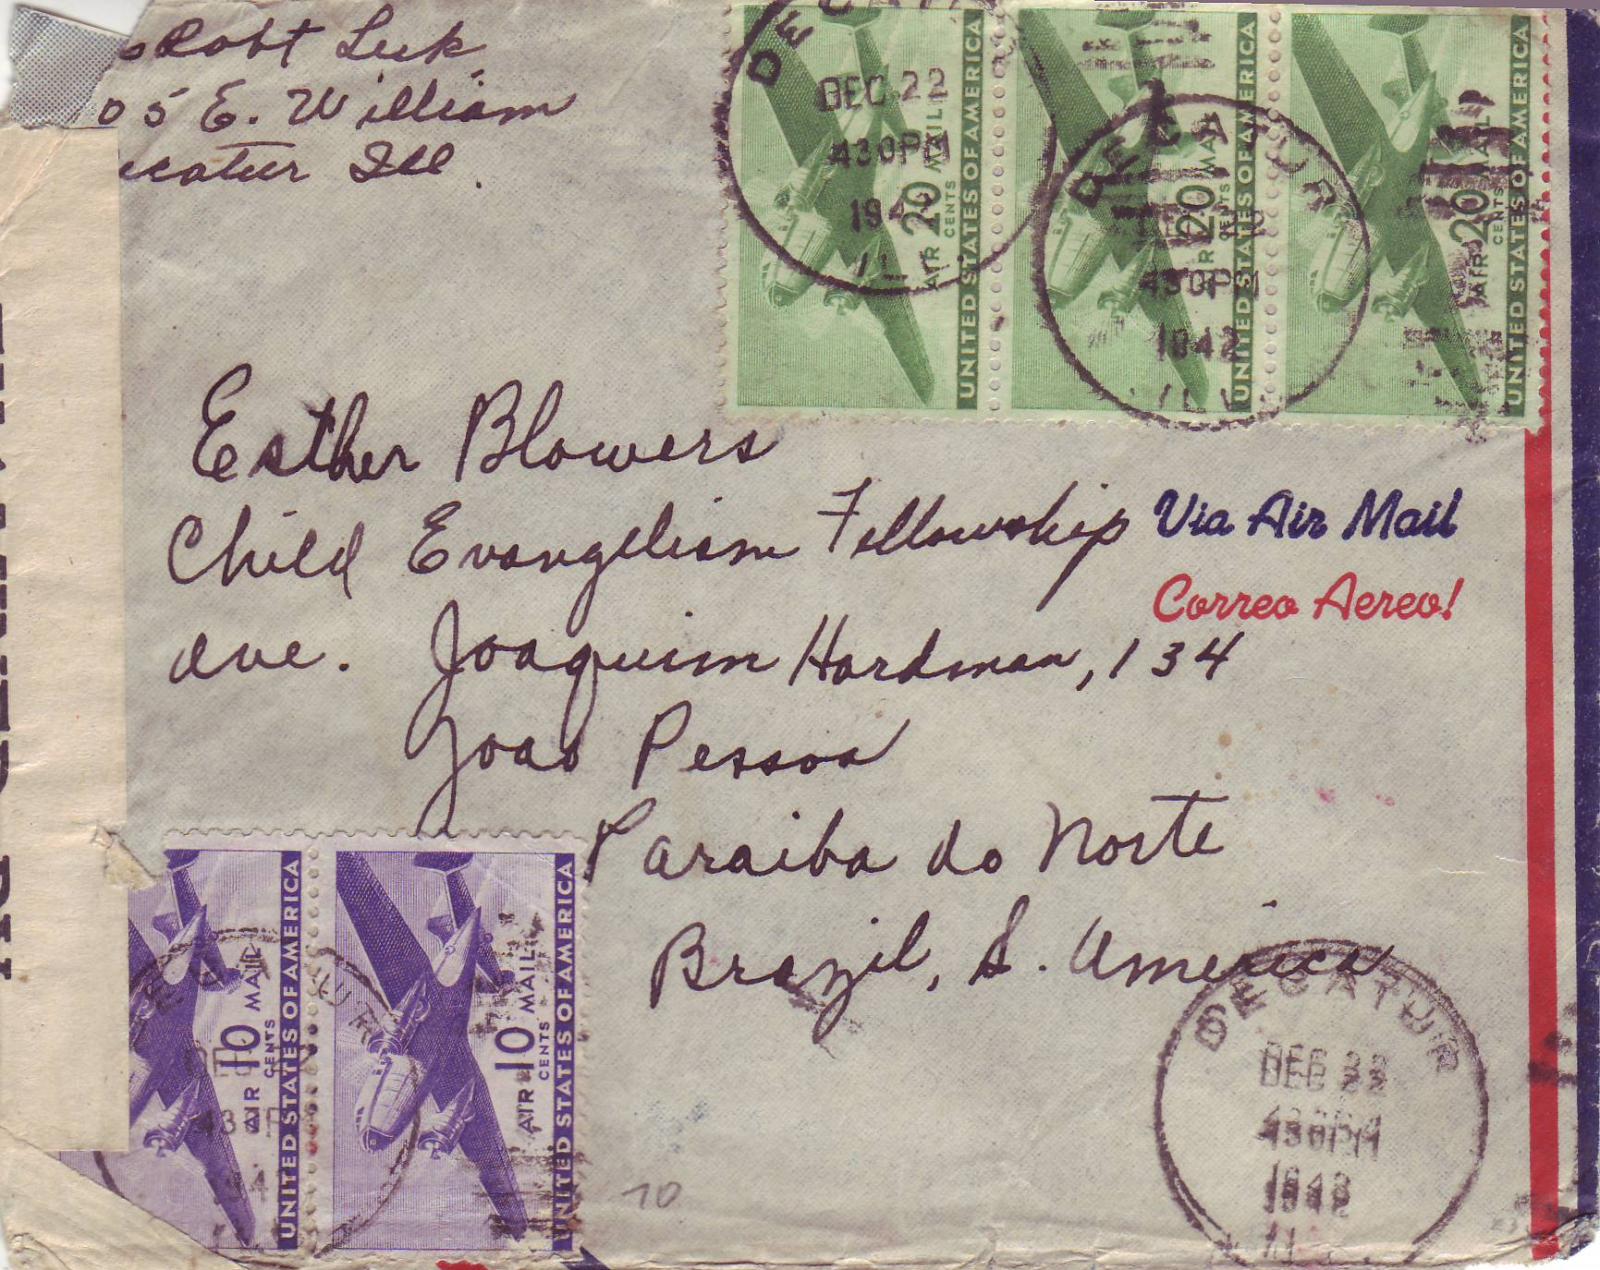 Robt Luk
05 E. William
ecatur Ill.
DECATUR
DEC 22
430PM
1942
ILL.
DECATUR
430PM
1942
ILL.
AIR 20 MAIL
CENTS
UNITED STATES OF AMERICA
AIR 20 MAIL
CENTS
UNITED STATES OF AMERICA
AIR 20 MAIL
CENTS
UNITED STATES OF AMERICA
Esther Blowers
Child Evangelism Fellowship
Via Air Mail
Correo Aereo!
Ave. Joaquim Hardman, 134
Joao Pessoa
Paraiba do Norte
Brazil, S. America
AIR 10 MAIL
CENTS
UNITED STATES OF AMERICA
AIR 10 MAIL
CENTS
UNITED STATES OF AMERICA
70
DECATUR
DEC 22
430PM
1942